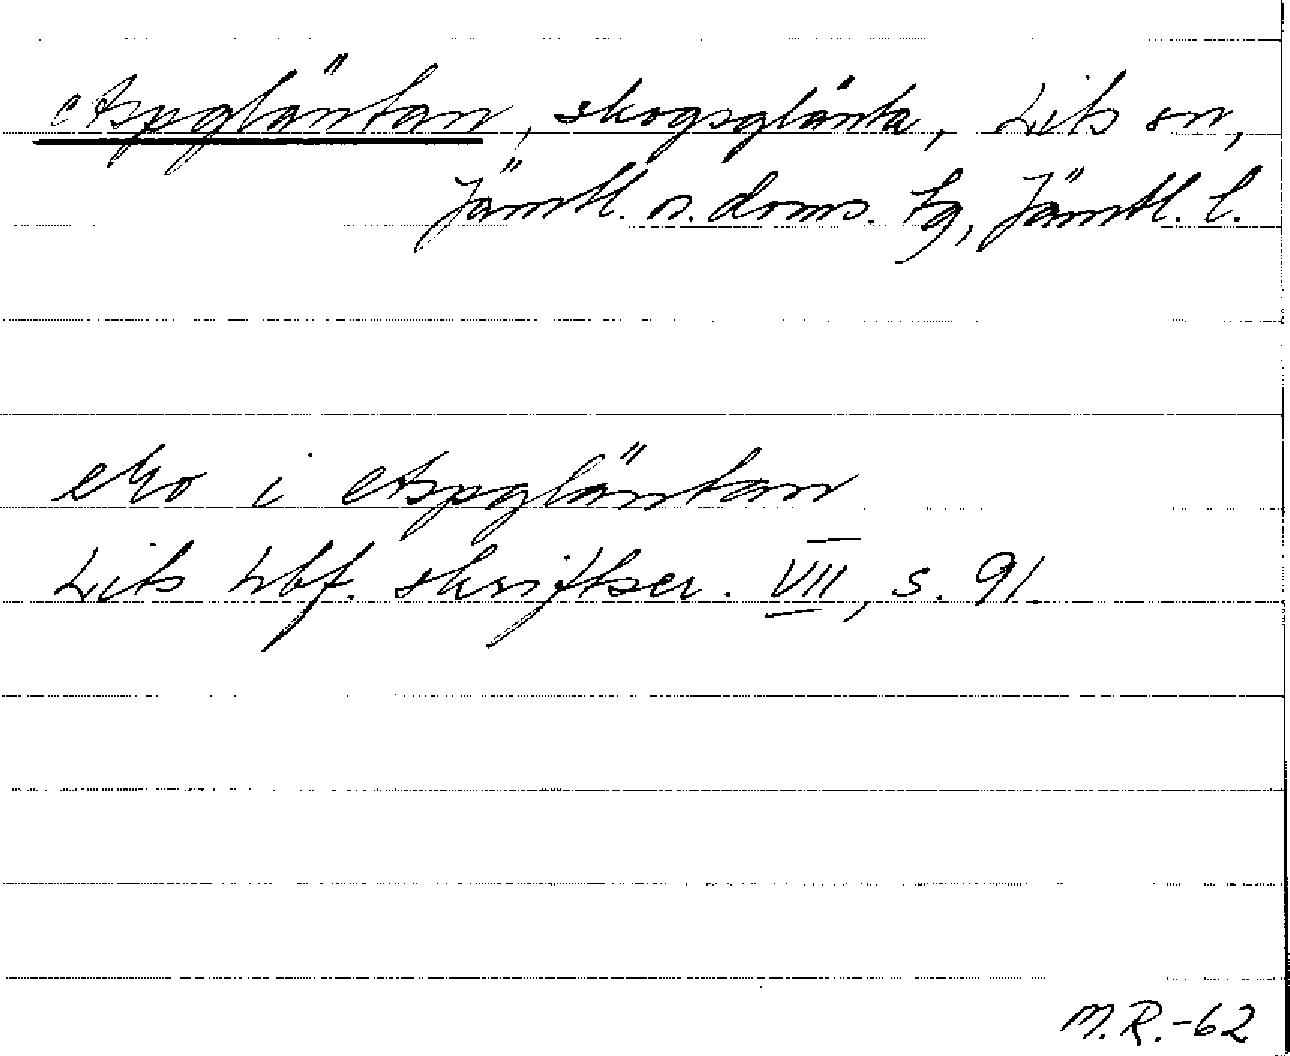 Aspgläntan, skogsglänta, Lits sn,
Jämtl. n. doms. tg, Jämtl. l.
Mo i Aspgläntan
Lits hbf. skriftser. VII, s. 91.
M.R.-62